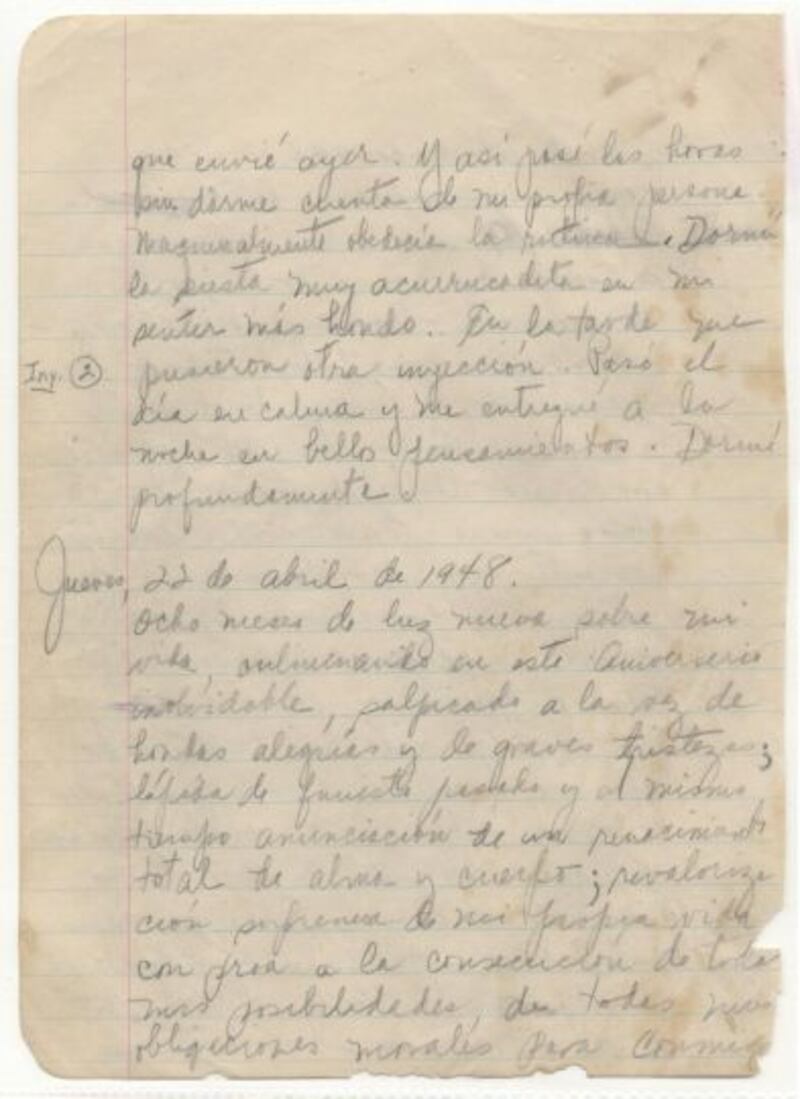 que envié ayer. Y así pasé las horas
sin darme cuenta de mi propia persona.
Maquinalmente obedecía la rutina. Dormí
la siesta muy acurrucadita en mi
sentir más hondo. En la tarde me
pusieron otra inyección. Pasó el
Iny. 2
día en calma y me entregué a la
noche en bellos pensamientos. Dormí
profundamente.
Jueves, 22 de abril de 1948.
Ocho meses de luz nueva sobre mi
vida, culminando en este aniversario
inolvidable, salpicado a la vez de
hondas alegrías y de graves tristezas;
lápida de funesto pasado y al mismo
tiempo anunciación de un renacimiento
total de alma y cuerpo; revaloriza
ción suprema de mi propia vida
con proa a la consecución de todas
mis posibilidades, de todas mis
obligaciones morales para conmigo